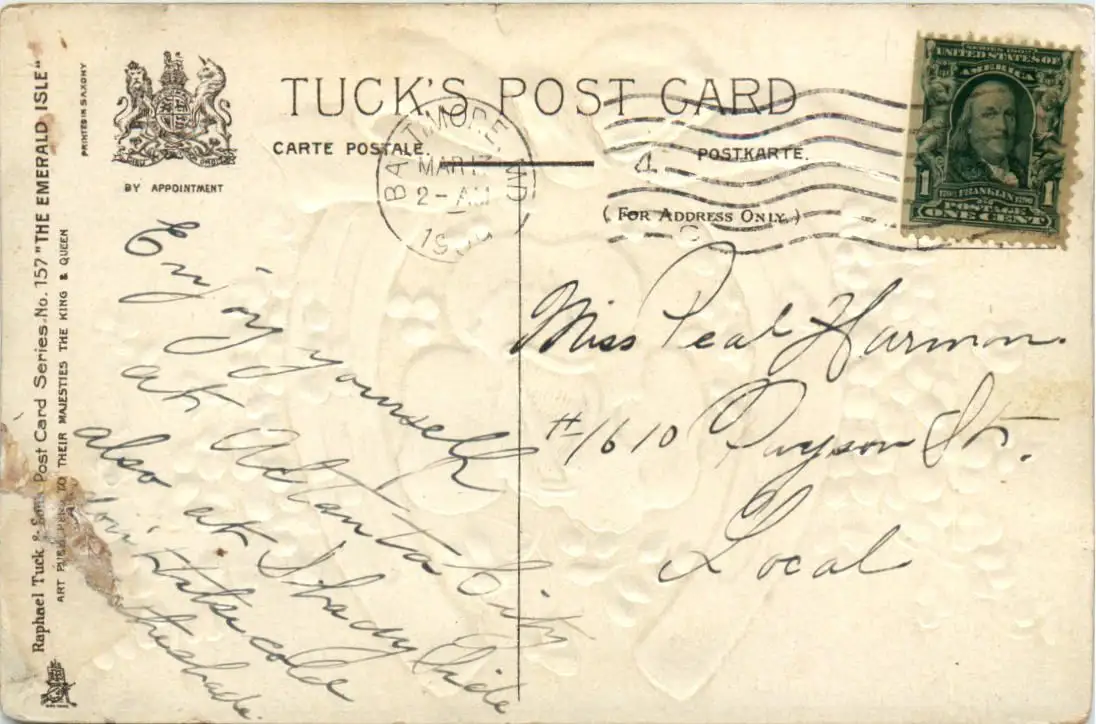 TUCK'S POST CARD
CARTE POSTALE.
POSTKARTE.
(FOR ADDRESS ONLY.)
BY APPOINTMENT
PRINTED IN SAXONY
Raphael Tuck & Sons Post Card Series No. 157 "THE EMERALD ISLE"
ART PUBLISHERS TO THEIR MAJESTIES THE KING & QUEEN
BALTIMORE, MD
MAR 17
2-AM
4
SERIES 1902
UNITED STATES OF
AMERICA
1 FRANKLIN 1
POSTAGE
ONE CENT
Enjoy yourself
at Atlanta City
also at Shady Side
cold
the shade.
Miss Peal Harmon.
#1610 Payson St.
Local